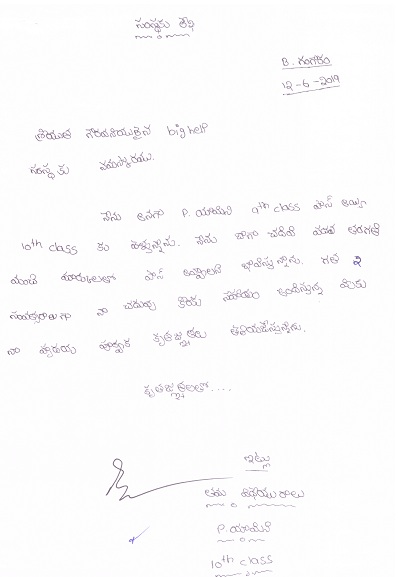 సంస్థకు లేఖ
B. గంగారం
12-6-2019
శ్రీయుత గౌరవనీయులైన big help
సంస్థ కు నమస్కారము.
నేను అనగా P. యామిని 9th class పాస్ అయ్యి
10th class కు వచ్చాను. నేను బాగా చదివి పదవ తరగతి
మంచి మార్కులతో పాస్ అవ్వాలని భావిస్తున్నాను. గత 2
సంవత్సరాలుగా నా చదువు కొరకు సహాయం అందిస్తున్న మీకు
నా హృదయ పూర్వక కృతజ్ఞతలు తెలియజేస్తున్నాను.
కృతజ్ఞతలతో....
ఇట్లు
తమ విధేయురాలు
P. యామిని
10th class